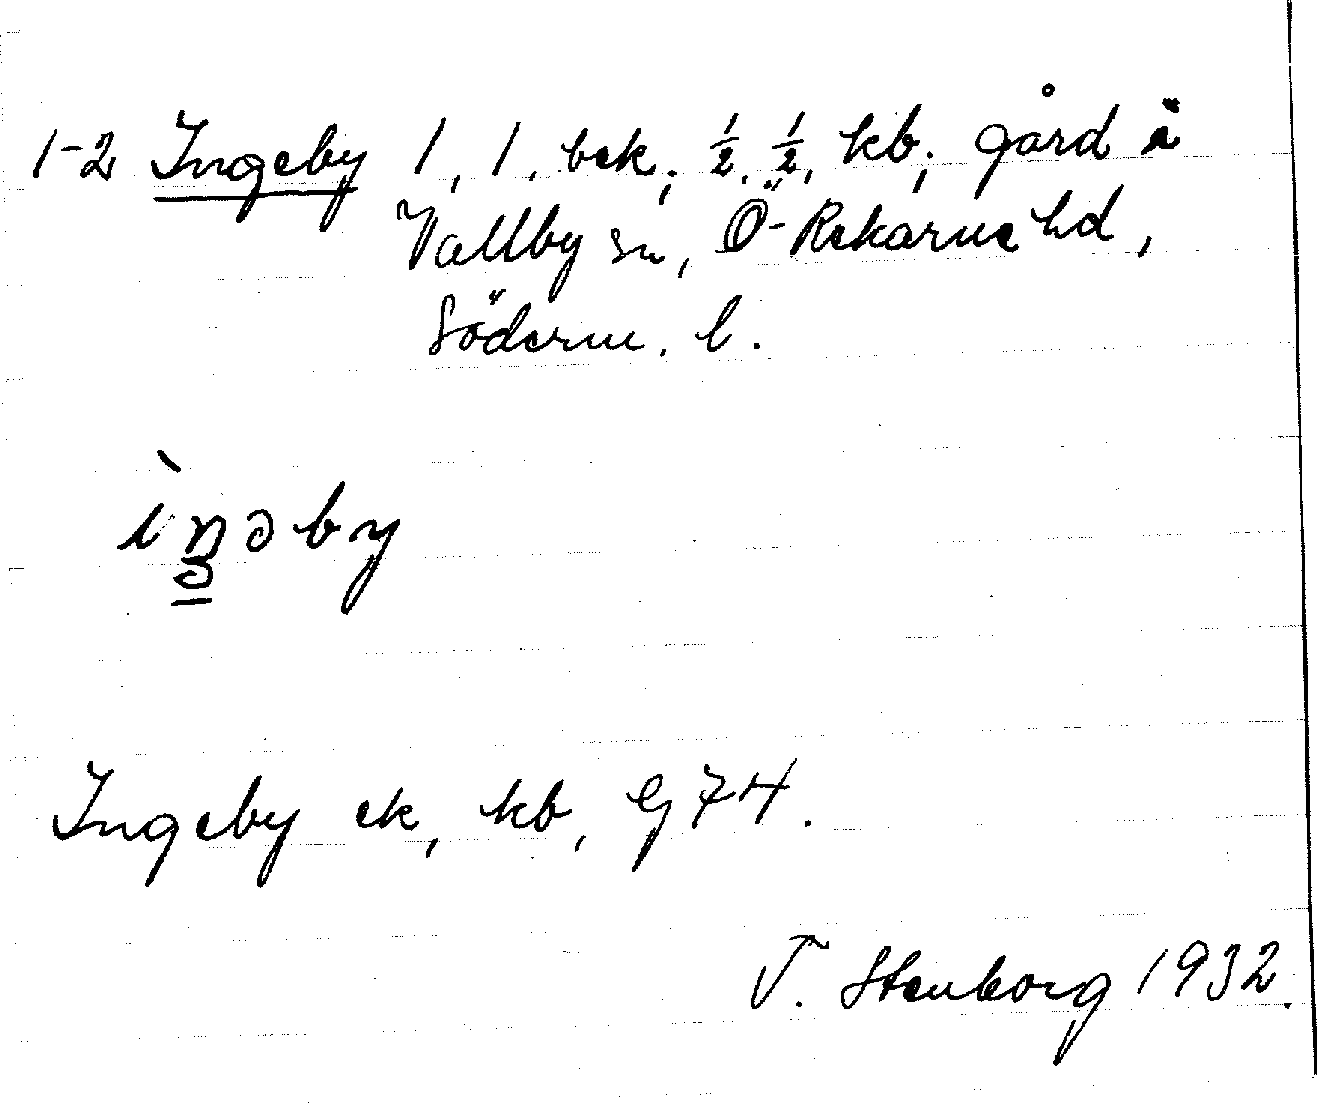 1-2 Ingeby 1, 1. bek; ½, ½, kb; gård i
Vallby sn, Ö-Rekarne hd,
Söderm. l.
ìŋəby
Ingeby ek, kb, G 74.
T. Stenborg 1932.